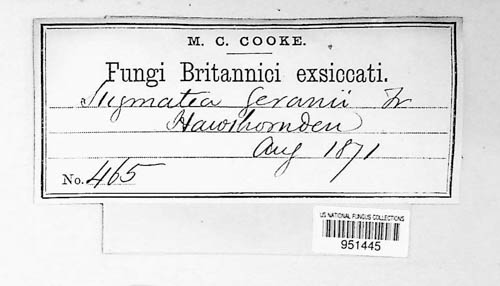 M. C. COOKE.
Fungi Britannici exsiccati.
Stigmatea Geranii Fr
Hawthornden
Aug 1871
No. 465
US NATIONAL FUNGUS COLLECTIONS
951445